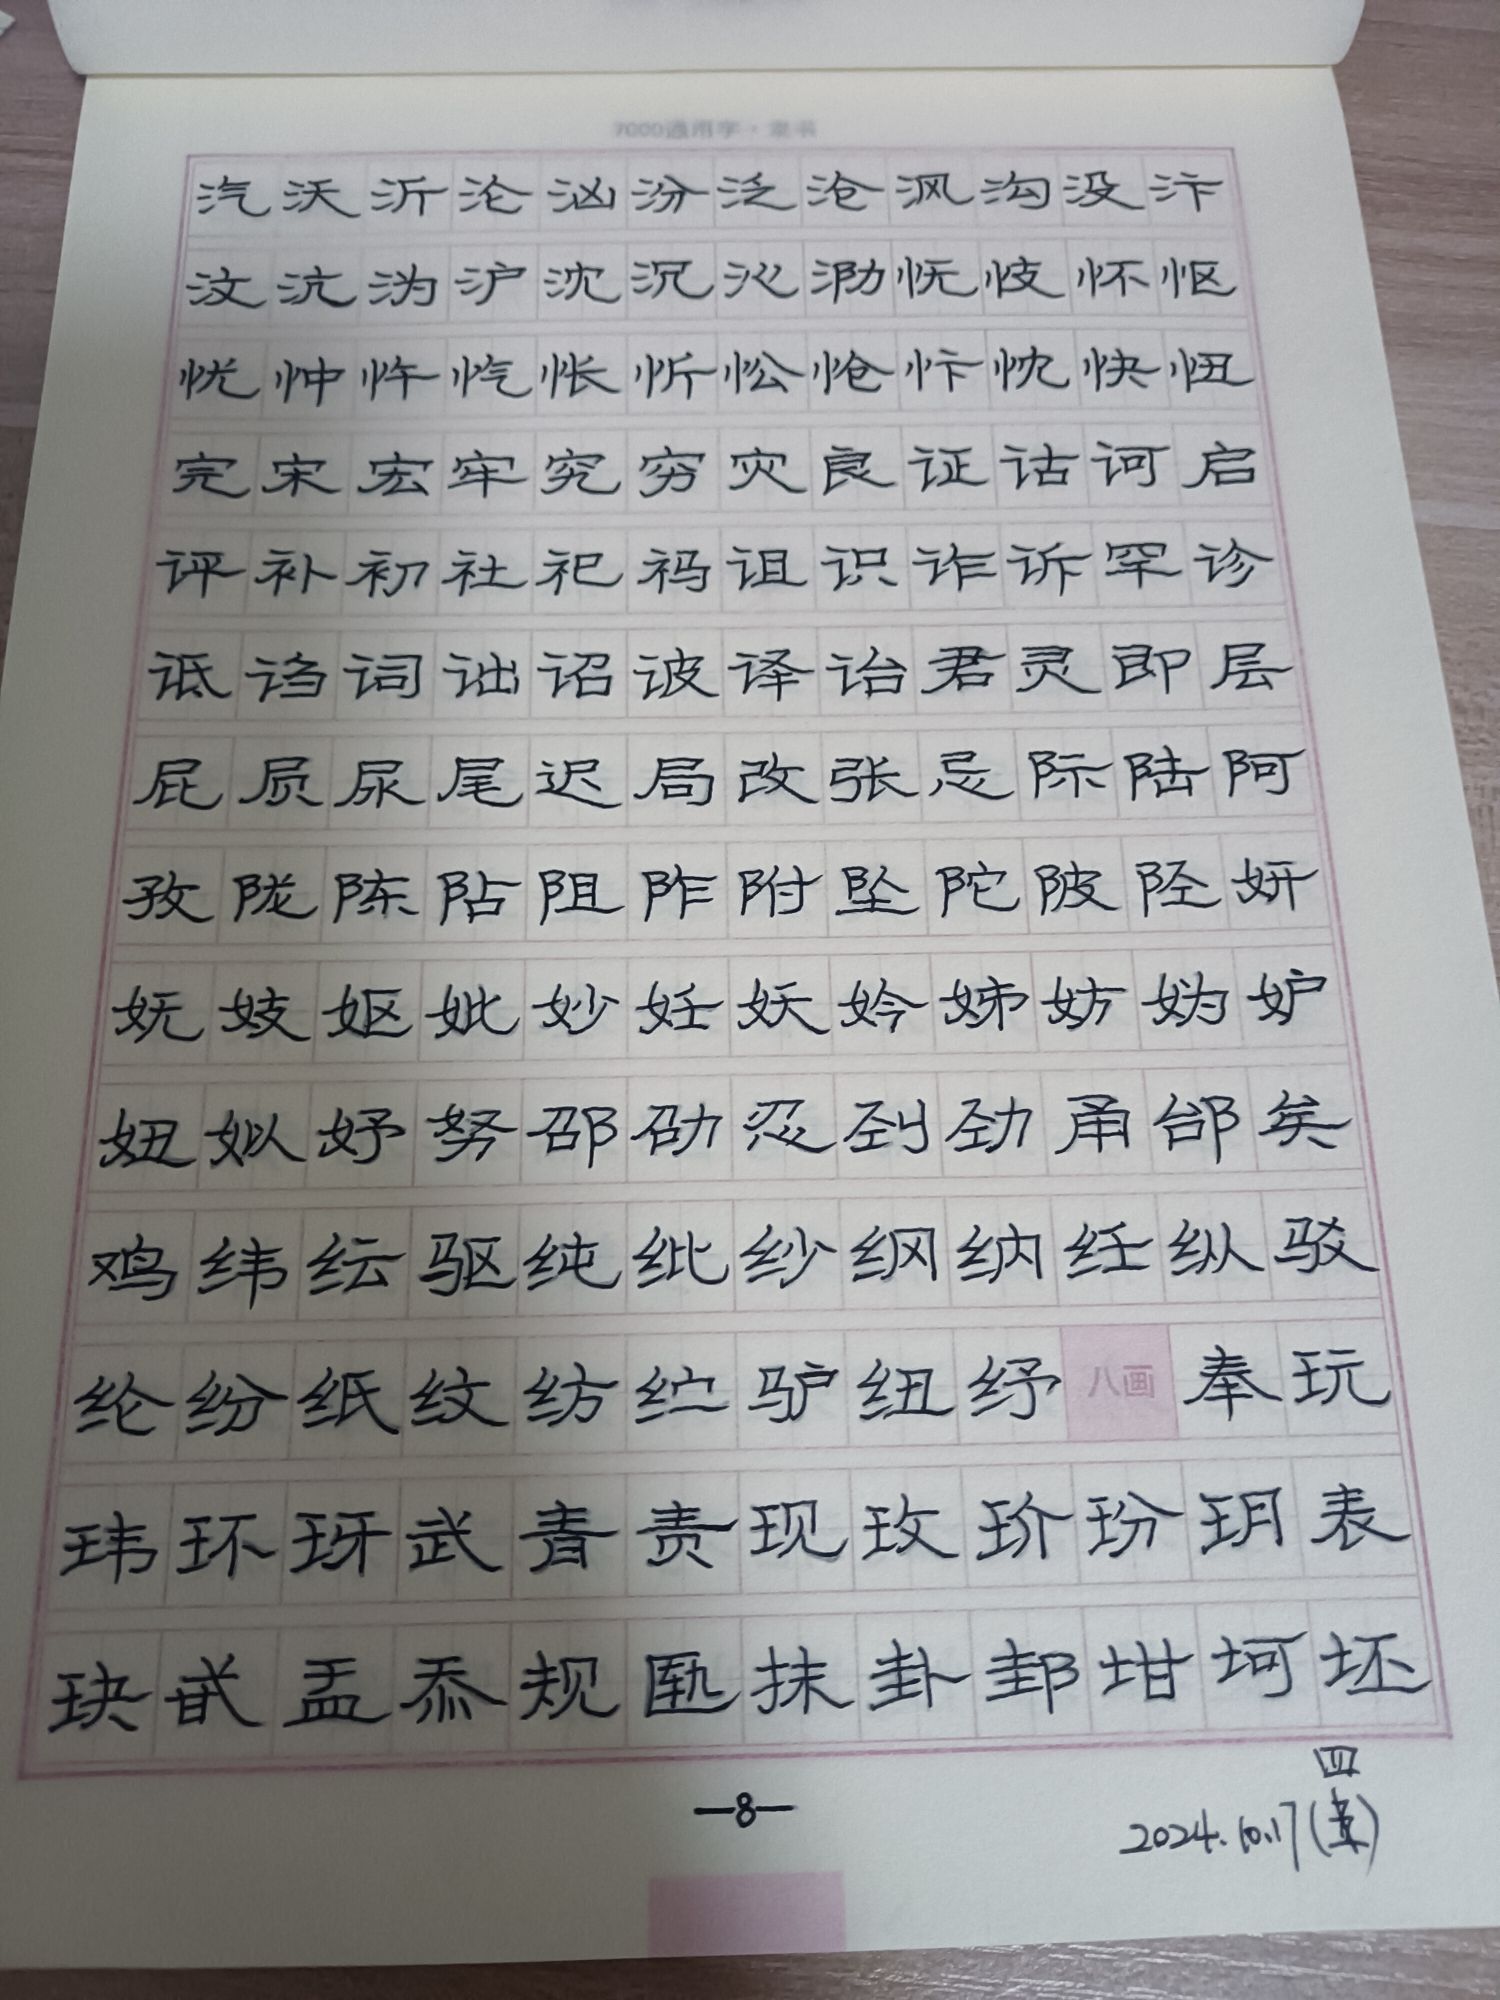 7000通用字·隶书
汽沃沂沦汹汾泛沧沨沟没汴
汶沆沩沪沈沉沁泐怃忮怀怄
忧忡忤忾怅忻忪怆忭忱快忸
完宋宏牢究穷灾良证诂诃启
评补初社祀祃诅识诈诉罕诊
诋诌词诎诏诐译诒君灵即层
屁屃尿尾迟局改张忌际陆阿
孜陇陈阽阻阼附坠陀陂陉妍
妩妓妪妣妙妊妖妗姊妨妫妒
妞姒妤努邵劭忍刭劲甬邰矣
鸡纬纭驱纯纰纱纲纳纴纵驳
纶纷纸纹纺纻驴纽纾八画奉玩
玮环玡武青责现玫玠玢玥表
玦甙盂忝规匦抹卦邽坩坷坯
—8—
四
2024.10.17()